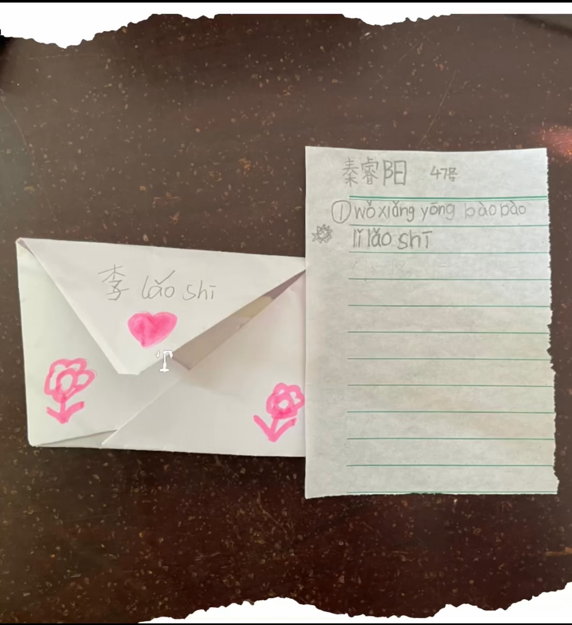 李 lǎo shī
秦睿阳 47号
①wǒ xiǎng yōng bào bào
lǐ lǎo shī